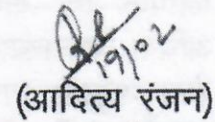 19/02
(आदित्य रंजन)